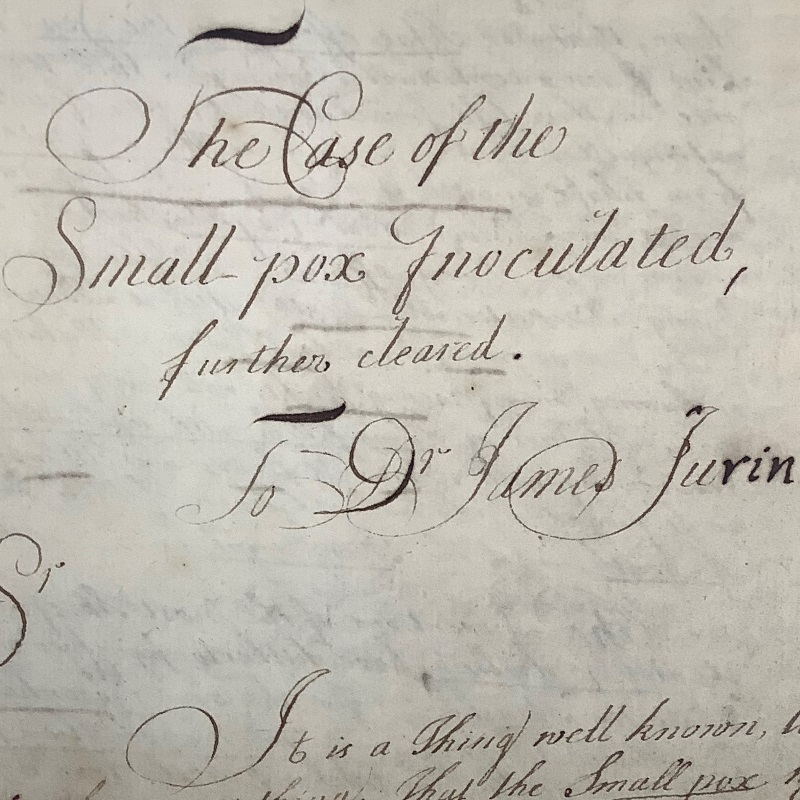 The Case of the
Small-pox Inoculated,
further cleared.
To Dr James Jurin
Sr
It is a Thing well known,
thing, That the Small pox